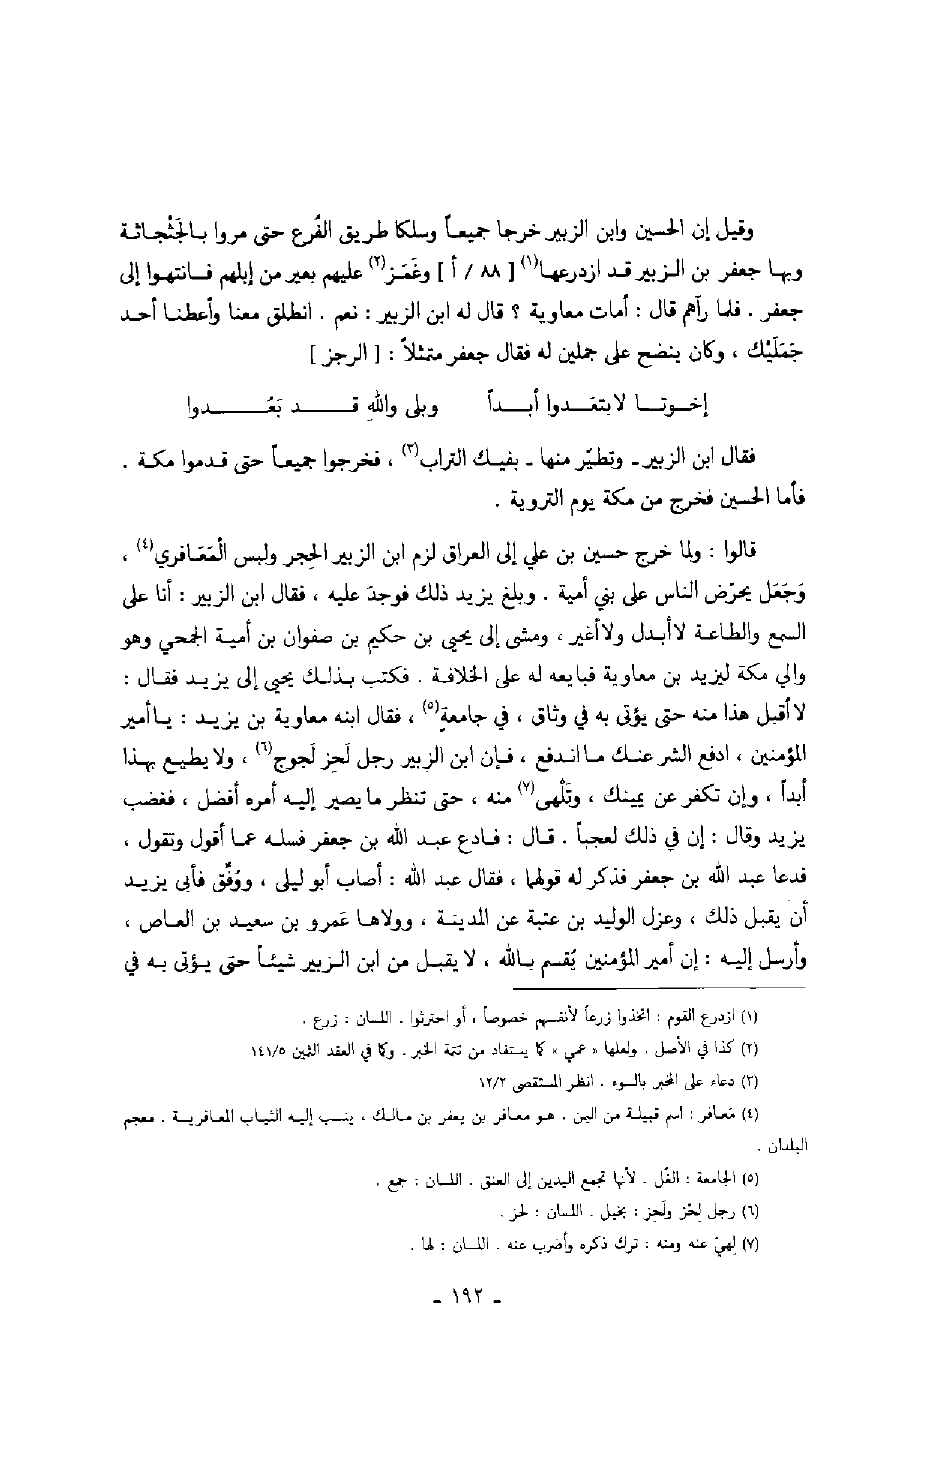 وقيل إن الحسين وابن الزبير خرجا جميعاً وسلكا طريق الفُرع حتى مروا بالجَثْجاثة
وبها جعفر بن الزبير قد ازدرعها(١) [ ٨٨ / أ ] وغَمَز(٢) عليهم بعير من إبلهم فانتهوا إلى
جعفر . فلما رآهم قال : أمات معاوية ؟ قال له ابن الزبير : نعم . انطلق معنا وأعطنا أحد
جَمَلَيْك ، وكان ينضح على جملين له فقال جعفر متمثلاً : [ الرجز ]
إخوتا لا بتعَدوا أبداً وبلى واللهِ قد بَعُدوا
فقال ابن الزبير ـ وتطيّر منها ـ بفيك التراب(٣) ، فخرجوا جميعاً حتى قدموا مكة .
فأما الحسين فخرج من مكة يوم التروية .
قالوا : ولما خرج حسين بن علي إلى العراق لزم ابن الزبير الحِجر ولبس الْمَعَافري(٤) ،
وَجَعَل يحرّض الناس على بني أمية . وبلغ يزيد ذلك فوجدَ عليه ، فقال ابن الزبير : أنا على
السمع والطاعة لا أبدل ولا أغير ، ومشى إلى يحيى بن حكيم بن صفوان بن أمية الجمحي وهو
والي مكة ليزيد بن معاوية فبايعه له على الخلافة . فكتب بذلك يحيى إلى يزيد فقال :
لا أَقبل هذا منه حتى يؤتى به في وثاق ، في جامعةٍ(٥) ، فقال ابنه معاوية بن يزيد : يا أمير
المؤمنين ، ادفع الشر عنك ما اندفع ، فإن ابن الزبير رجل لَحِز لَجوج(٦) ، ولا يطيع بهذا
أبداً ، وإن تكفر عن يمينك ، وتَلْهى(٧) منه ، حتى تنظر ما يصير إليه أمره أفضل ، فغضب
يزيد وقال : إن في ذلك لعجباً . قال : فادع عبد الله بن جعفر فسله عما أقول وتقول ،
فدعا عبد الله بن جعفر فذكر له قولهما ، فقال عبد الله : أصاب أبو ليلى ، ووُفِّق فأبى يزيد
أن يقبل ذلك ، وعزل الوليد بن عتبة عن المدينة ، وولاها عَمرو بن سعيد بن العاص ،
وأرسل إليه : إن أمير المؤمنين يُقسم بالله ، لا يقبل من ابن الزبير شيئاً حتى يؤتى به في
(١) ازدرع القوم : اتخذوا زرعاً لأنفسهم خصوصاً ، أو احترثوا . اللسان : زرع .
(٢) كذا في الأصل . ولعلها « عمي » كما يستفاد من تتمة الخبر . وكما في العقد الثمين ١٤١/٥
(٣) دعاء على المخبر بالسوء . انظر المستقصى ١٢/٢
(٤) مَعافر : اسم قبيلة من اليمن . هو معافر بن يعفر بن مالك ، ينسب إليه الثياب المعافرية . معجم
البلدان .
(٥) الجامعة : الغُل . لأنها تجمع اليدين إلى العنق . اللسان : جمع .
(٦) رجل لِحْز ولَحِز : بخيل . اللسان : لحز .
(٧) لهيَ عنه ومنه : ترك ذكره وأضرب عنه . اللسان : لها .
ـ ١٩٢ ـ